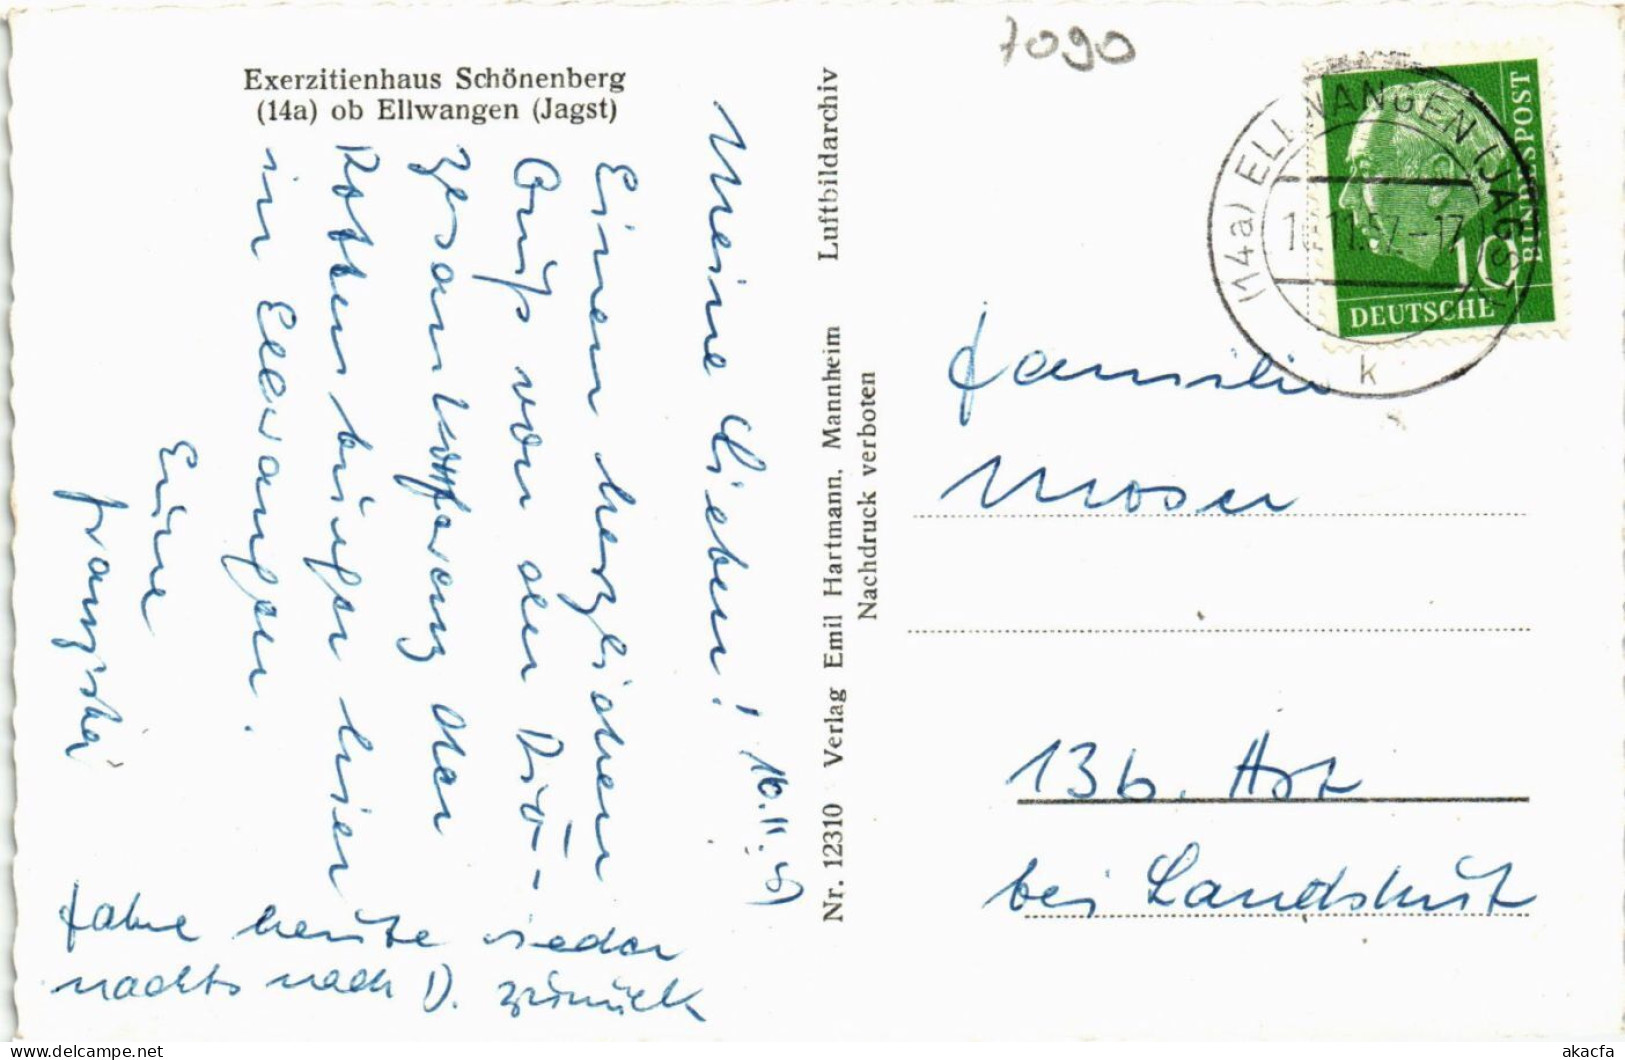 Exerzitienhaus Schönenberg
(14a) ob Ellwangen (Jagst)
7090
Meine Lieben!
16.11.57
Einen herzlichen
Gruß von der Diö-
zesankonferenz der
Rottenburger hier
in Ellwangen.
Eure
Franziska
Fahre heute wieder
nachts nach D. zurück
Nr. 12310 Verlag Emil Hartmann, Mannheim Luftbildarchiv
Nachdruck verboten
(14a) ELLWANGEN (JAGST)
11.57.-17
k
10
DEUTSCHE
BUNDESPOST
Familie
Moser
13b. Ast
bei Landshut
akacfa